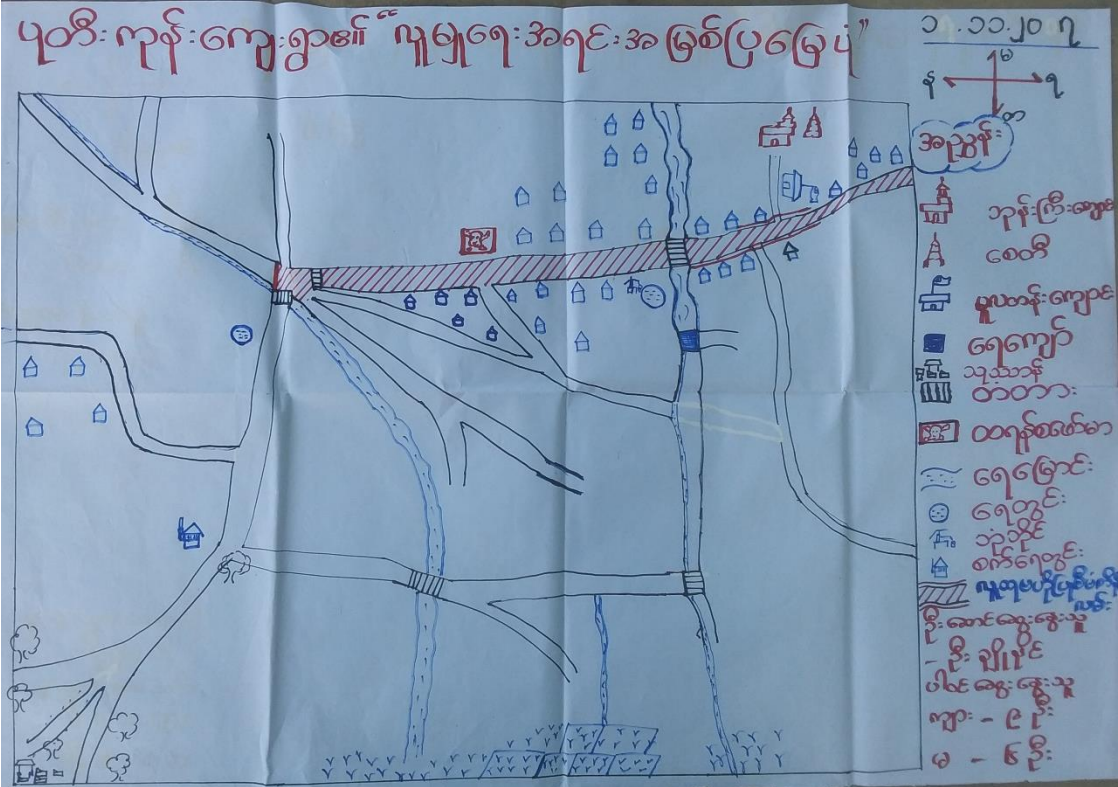 ပုတီးကုန်းကျေးရွာ၏ "လူမှုရေးအရင်းအမြစ်ပြမြေပုံ"
၁.၁၁.၂၀ ၇
မ
န
ရ
တ
အညွှန်း
ဘုန်းကြီးကျောင်း
စေတီ
မူလတန်းကျောင်း
ရေကျော်
သုဿာန်
တံတား
ထရန်စဖော်မာ
ရေမြောင်း
ရေတွင်း
ဘုံဘိုင်
စက်ရေတွင်း
လူထုဗဟိုပြုစီမံကိန်း
လမ်း
ဦးဆောင်ဆွေးနွေးသူ
- ဦးချိုပိုင်
ပါဝင်ဆွေးနွေးသူ
ကျား - ၉ ဦး
မ - ၆ ဦး